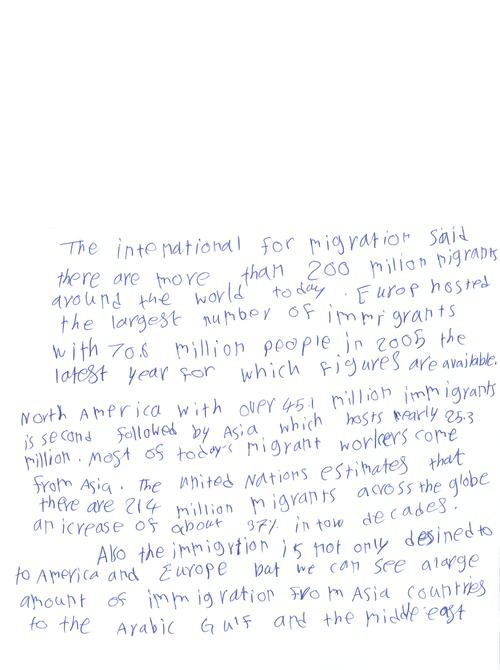 The international for migration said
there are more than 200 milion migrants
around the world today. Europ hosted
the largest number of immigrants
with 70.6 million people in 2005 the
latest year for which figures are available.
North America with over 45.1 million immigrants
is second followed by Asia which hosts nearly 25.3
million. Most of today's migrant workers come
from Asia. The United Nations estimates that
there are 214 million migrants across the globe
an icrease of about 37% in tow decades.
Also the immigrtion is not only desined to
to America and Europe but we can see alarge
amount of immigration from Asia countries
to the Arabic Gulf and the middle east